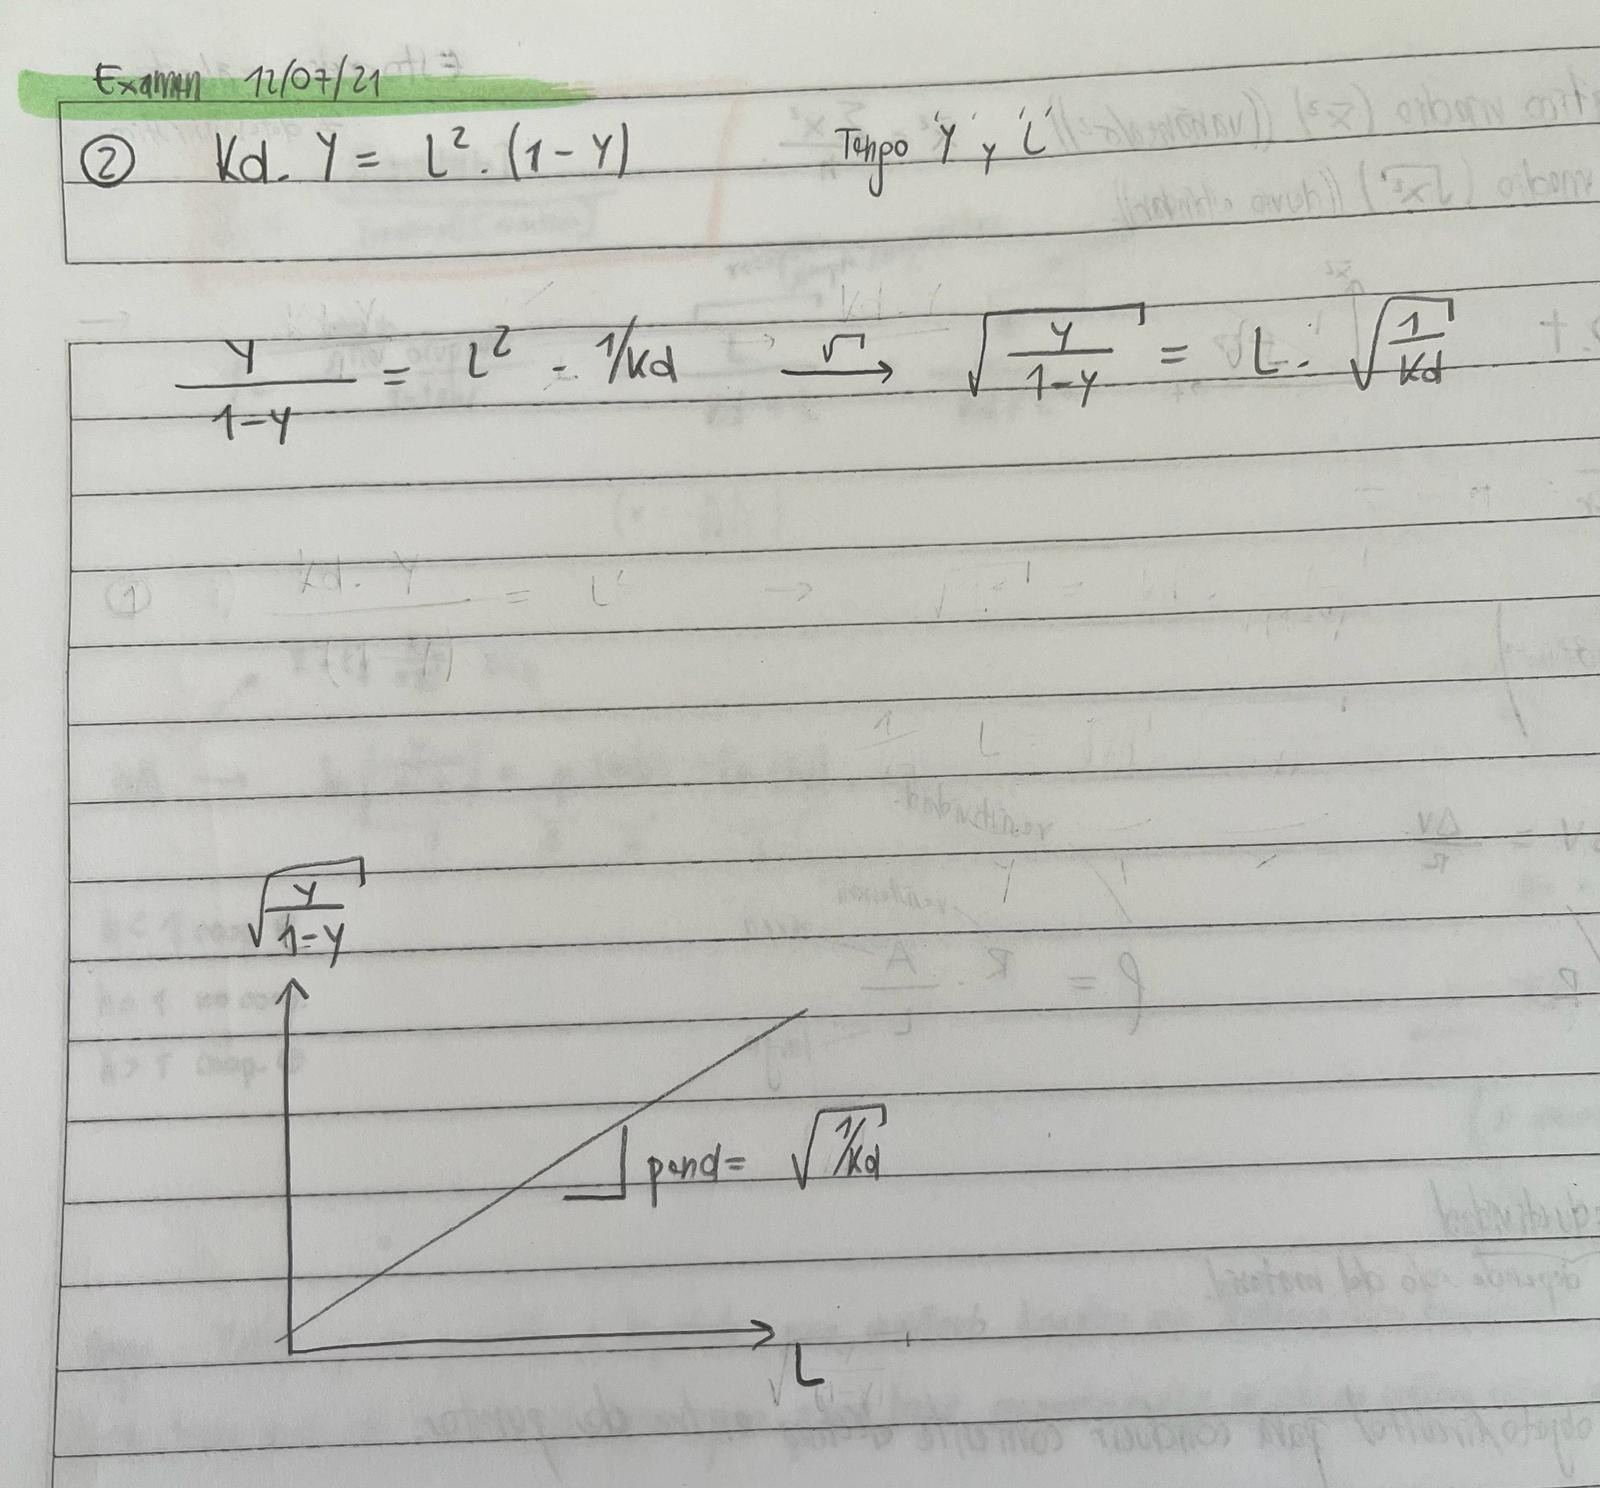 Examen 12/07/21
② Kd. Y = L². (1-Y) Tengo 'Y' y 'L'
Y/1-Y = L² . 1/Kd √→ √(Y/1-Y) = L. √(1/Kd)
√(Y/1-Y)
pend= √(1/Kd)
L